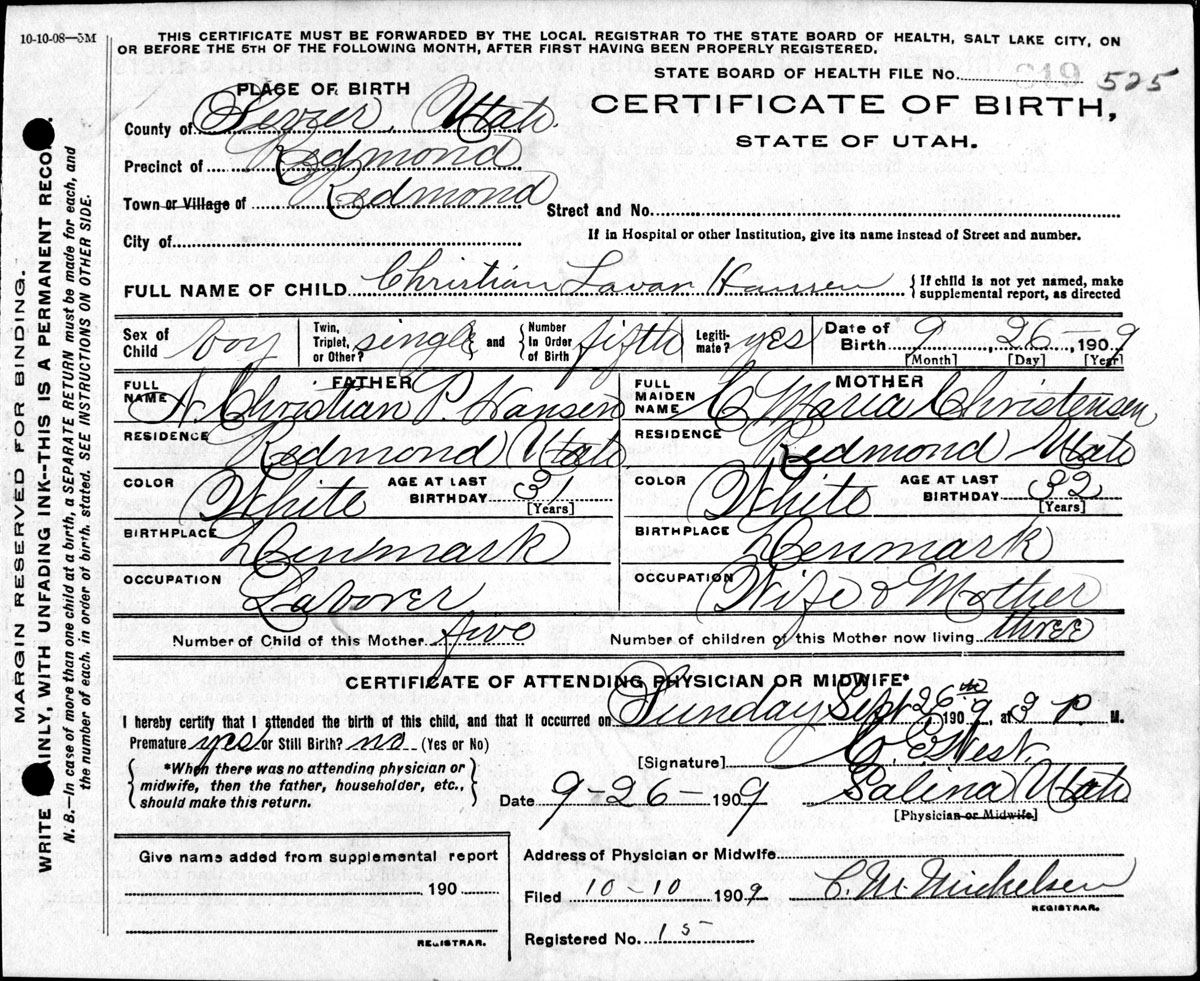 10-10-08—5M
THIS CERTIFICATE MUST BE FORWARDED BY THE LOCAL REGISTRAR TO THE STATE BOARD OF HEALTH, SALT LAKE CITY, ON
OR BEFORE THE 5TH OF THE FOLLOWING MONTH, AFTER FIRST HAVING BEEN PROPERLY REGISTERED.
STATE BOARD OF HEALTH FILE No. 849 525
CERTIFICATE OF BIRTH,
STATE OF UTAH.
PLACE OF BIRTH
County of Sevier, Utah.
Precinct of Redmond
Town or Village of Redmond
Street and No.
City of
If in Hospital or other Institution, give its name instead of Street and number.
FULL NAME OF CHILD Christian Lavar Hansen { If child is not yet named, make
supplemental report, as directed
Sex of Child boy Twin, Triplet, or Other? single and Number In Order of Birth fifth Legiti-mate? yes Date of Birth 9, 26 — 1909
[Month] [Day] [Year]
FATHER
FULL NAME A. Christian P. Hansen
RESIDENCE Redmond Utah
COLOR White AGE AT LAST BIRTHDAY 31 [Years]
BIRTHPLACE Denmark
OCCUPATION Laborer
MOTHER
FULL MAIDEN NAME C Maria Christensen
RESIDENCE Redmond Utah
COLOR White AGE AT LAST BIRTHDAY 32 [Years]
BIRTHPLACE Denmark
OCCUPATION Wife & Mother
Number of Child of this Mother five Number of children of this Mother now living three
CERTIFICATE OF ATTENDING PHYSICIAN OR MIDWIFE*
I hereby certify that I attended the birth of this child, and that it occurred on Sunday Sept 26th 1909, at 3 P. M.
Premature yes or Still Birth? no (Yes or No)
{ *When there was no attending physician or
midwife, then the father, householder, etc.,
should make this return. }
[Signature] C. E. West.
Date 9-26-1909 Salina Utah
[Physician or Midwife]
Give name added from supplemental report
190
REGISTRAR.
Address of Physician or Midwife
Filed 10-10 1909 C. M. Mickelsen
REGISTRAR.
Registered No. 15
MARGIN RESERVED FOR BINDING.
WRITE AINLY, WITH UNFADING INK--THIS IS A PERMANENT RECO
N. B.—In case of more than one child at birth, a SEPARATE RETURN must be made for each, and
the number of each. in order of birth. stated. SEE INSTRUCTIONS ON OTHER SIDE.